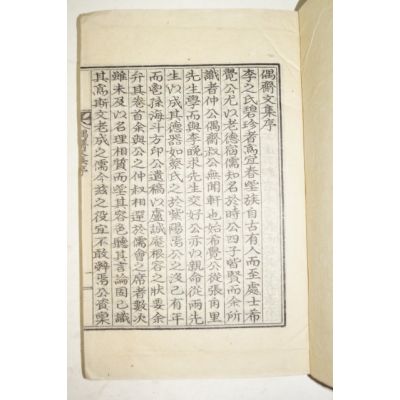 偶齋文集序
李之氏碧珍者爲宜春望族自古有人而至處士希
覺公尤以老德宿儒知名於時公四子皆賢而余所
識者仲公偶齋叔公無聞軒也始希覺公從張角里
先生學而與李晩求先生交好公亦以親命從兩先
生以成其德器如蔡氏之於紫陽焉公之沒已有年
而胤孫海斗方印公遺稿以盧誠庵根容之狀要余
弁其卷首余與公之仲叔相選於儒會之席者數次
雖未及以名理相質而望其容色聽其言論固已識
其高斯文老成之儒今玆之役宜不敢辭焉公資稟
偶齋文集序
一